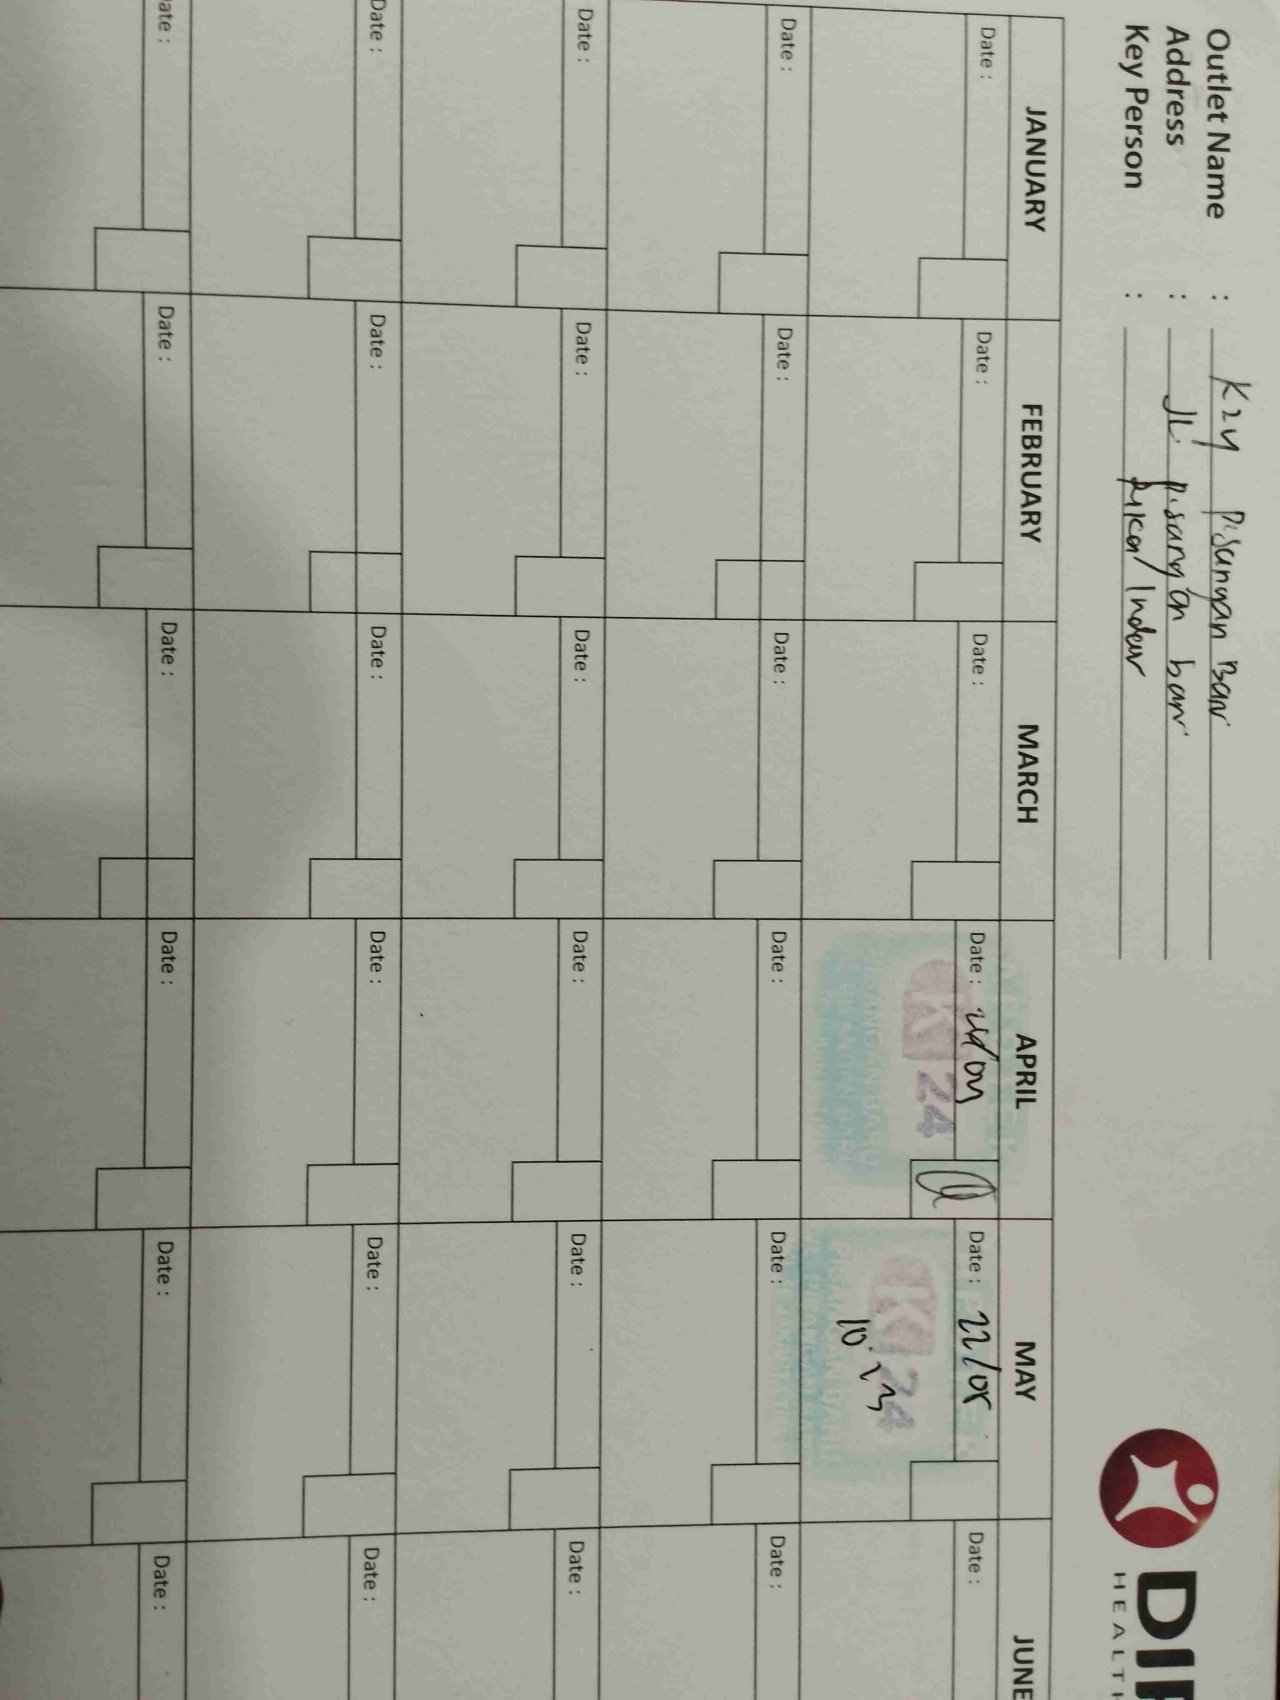 Outlet Name : K24 Pisangan Baru
Address : JL. Pisangan baru
Key Person :
DI
HEALTH
JANUARY FEBRUARY MARCH APRIL MAY JUNE
Date : Date : Date : Date : Date : 22/05 Date :
K 24 K 24
10.23
Date : Date : Date : Date : Date : Date :
Date : Date : Date : Date : Date : Date :
Date : Date : Date : Date : Date : Date :
Date : Date : Date : Date : Date : Date :